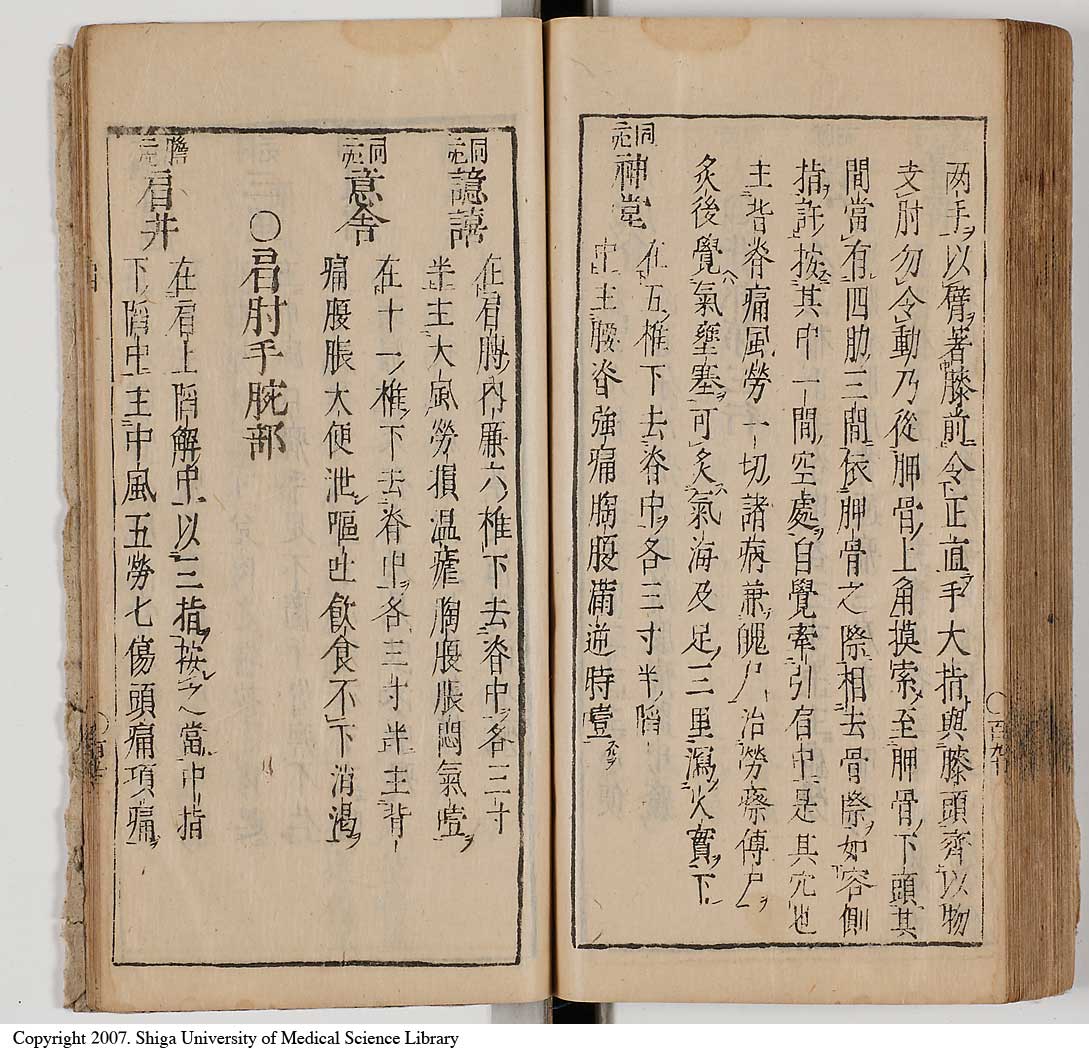 两手以臂著膝前令正直手大指與膝頭齊以物
支肘勿令動乃從胛骨上角摸索至胛骨下頭其
間當有四肋三間依胛骨之際相去骨際如容側
指許按其中一間空處自覺牽引肩中是其穴也
主背脊痛風勞一切諸病兼魄尸治勞瘵傳尸
灸後覺氣壅塞可灸氣海及足三里瀉火實下
同二穴 神堂 在五椎下去脊中各三寸半陷
中主腰脊強痛胸腹滿逆時噎
同二穴 譩譆 在肩膊內廉六椎下去脊中各三寸
半主大風勞損温瘧胸腹脹悶氣噎
同二穴 意舍 在十一椎下去脊中各三寸半主背
痛腹脹大便泄嘔吐飲食不下消渴
○肩肘手腕部
膽二穴 肩井 在肩上陷解中以三指按之當中指
下陷中主中風五勞七傷頭痛項痛
Copyright 2007. Shiga University of Medical Science Library